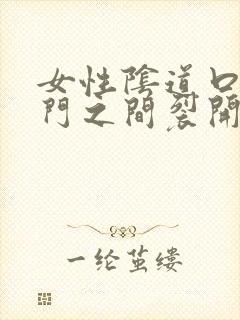 女性陰道口
門之間裂開
一纶茧缕